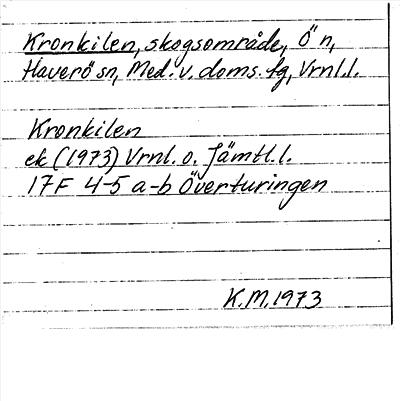 Kronkilen, skogsområde, Ö n,
Haverö sn, Med. v. doms. fg, Vrnl.l.
Kronkilen
ek (1973) Vrnl. o. Jämtl.l.
17F 4-5 a-b Överturingen
K.M. 1973